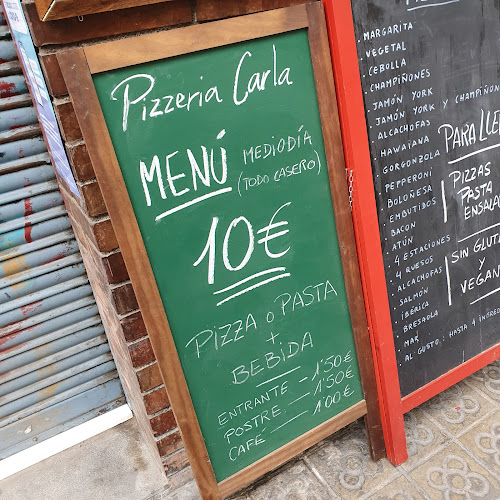 Pizzeria Carla
MENÚ MEDIODÍA
(TODO CASERO)
10€
PIZZA o PASTA
+
BEBiDA
ENTRANTE - 1'50€
POSTRE - 1'50€
CAFÉ - 1'00€
· MARGARITA
· VEGETAL
· CEBOLLA
· CHAMPIÑONES
· JAMÓN YORK
· JAMÓN YORK y CHAMPIÑON
· ALCACHOFAS
· HAWAIANA
· GORGONZOLA
· PEPPERONI
· BOLOÑESA
· EMBUTIDOS
· BACON
· ATÚN
· 4 ESTACIONES
· 4 QUESOS
· ALCACHOFAS
· SALMÓN
· IBÉRICA
· BRESAOLA
· MAR
· AL GUSTO: HASTA 4 INGRED
PARA LLE
PIZZAS
PASTA
ENSALA
SIN GLUT
Y
VEGAN